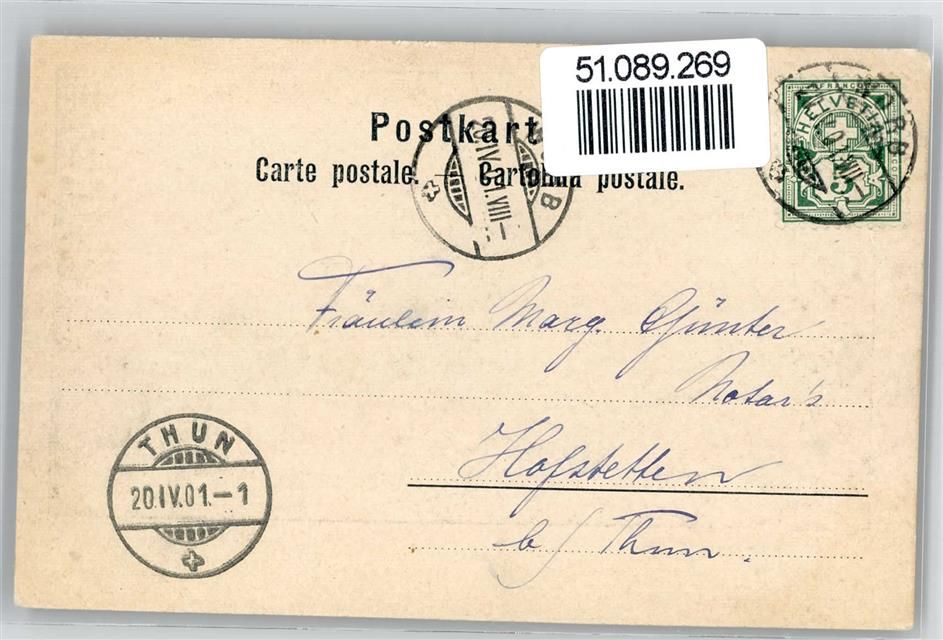 51.089.269
Postkart
Carte postale. Cartolina postale.
FRANCO
HELVETIA
5
Fräulein Marg. Günter
Notar's
Hofstetten
b/ Thun.
THUN
20.IV.01.–1